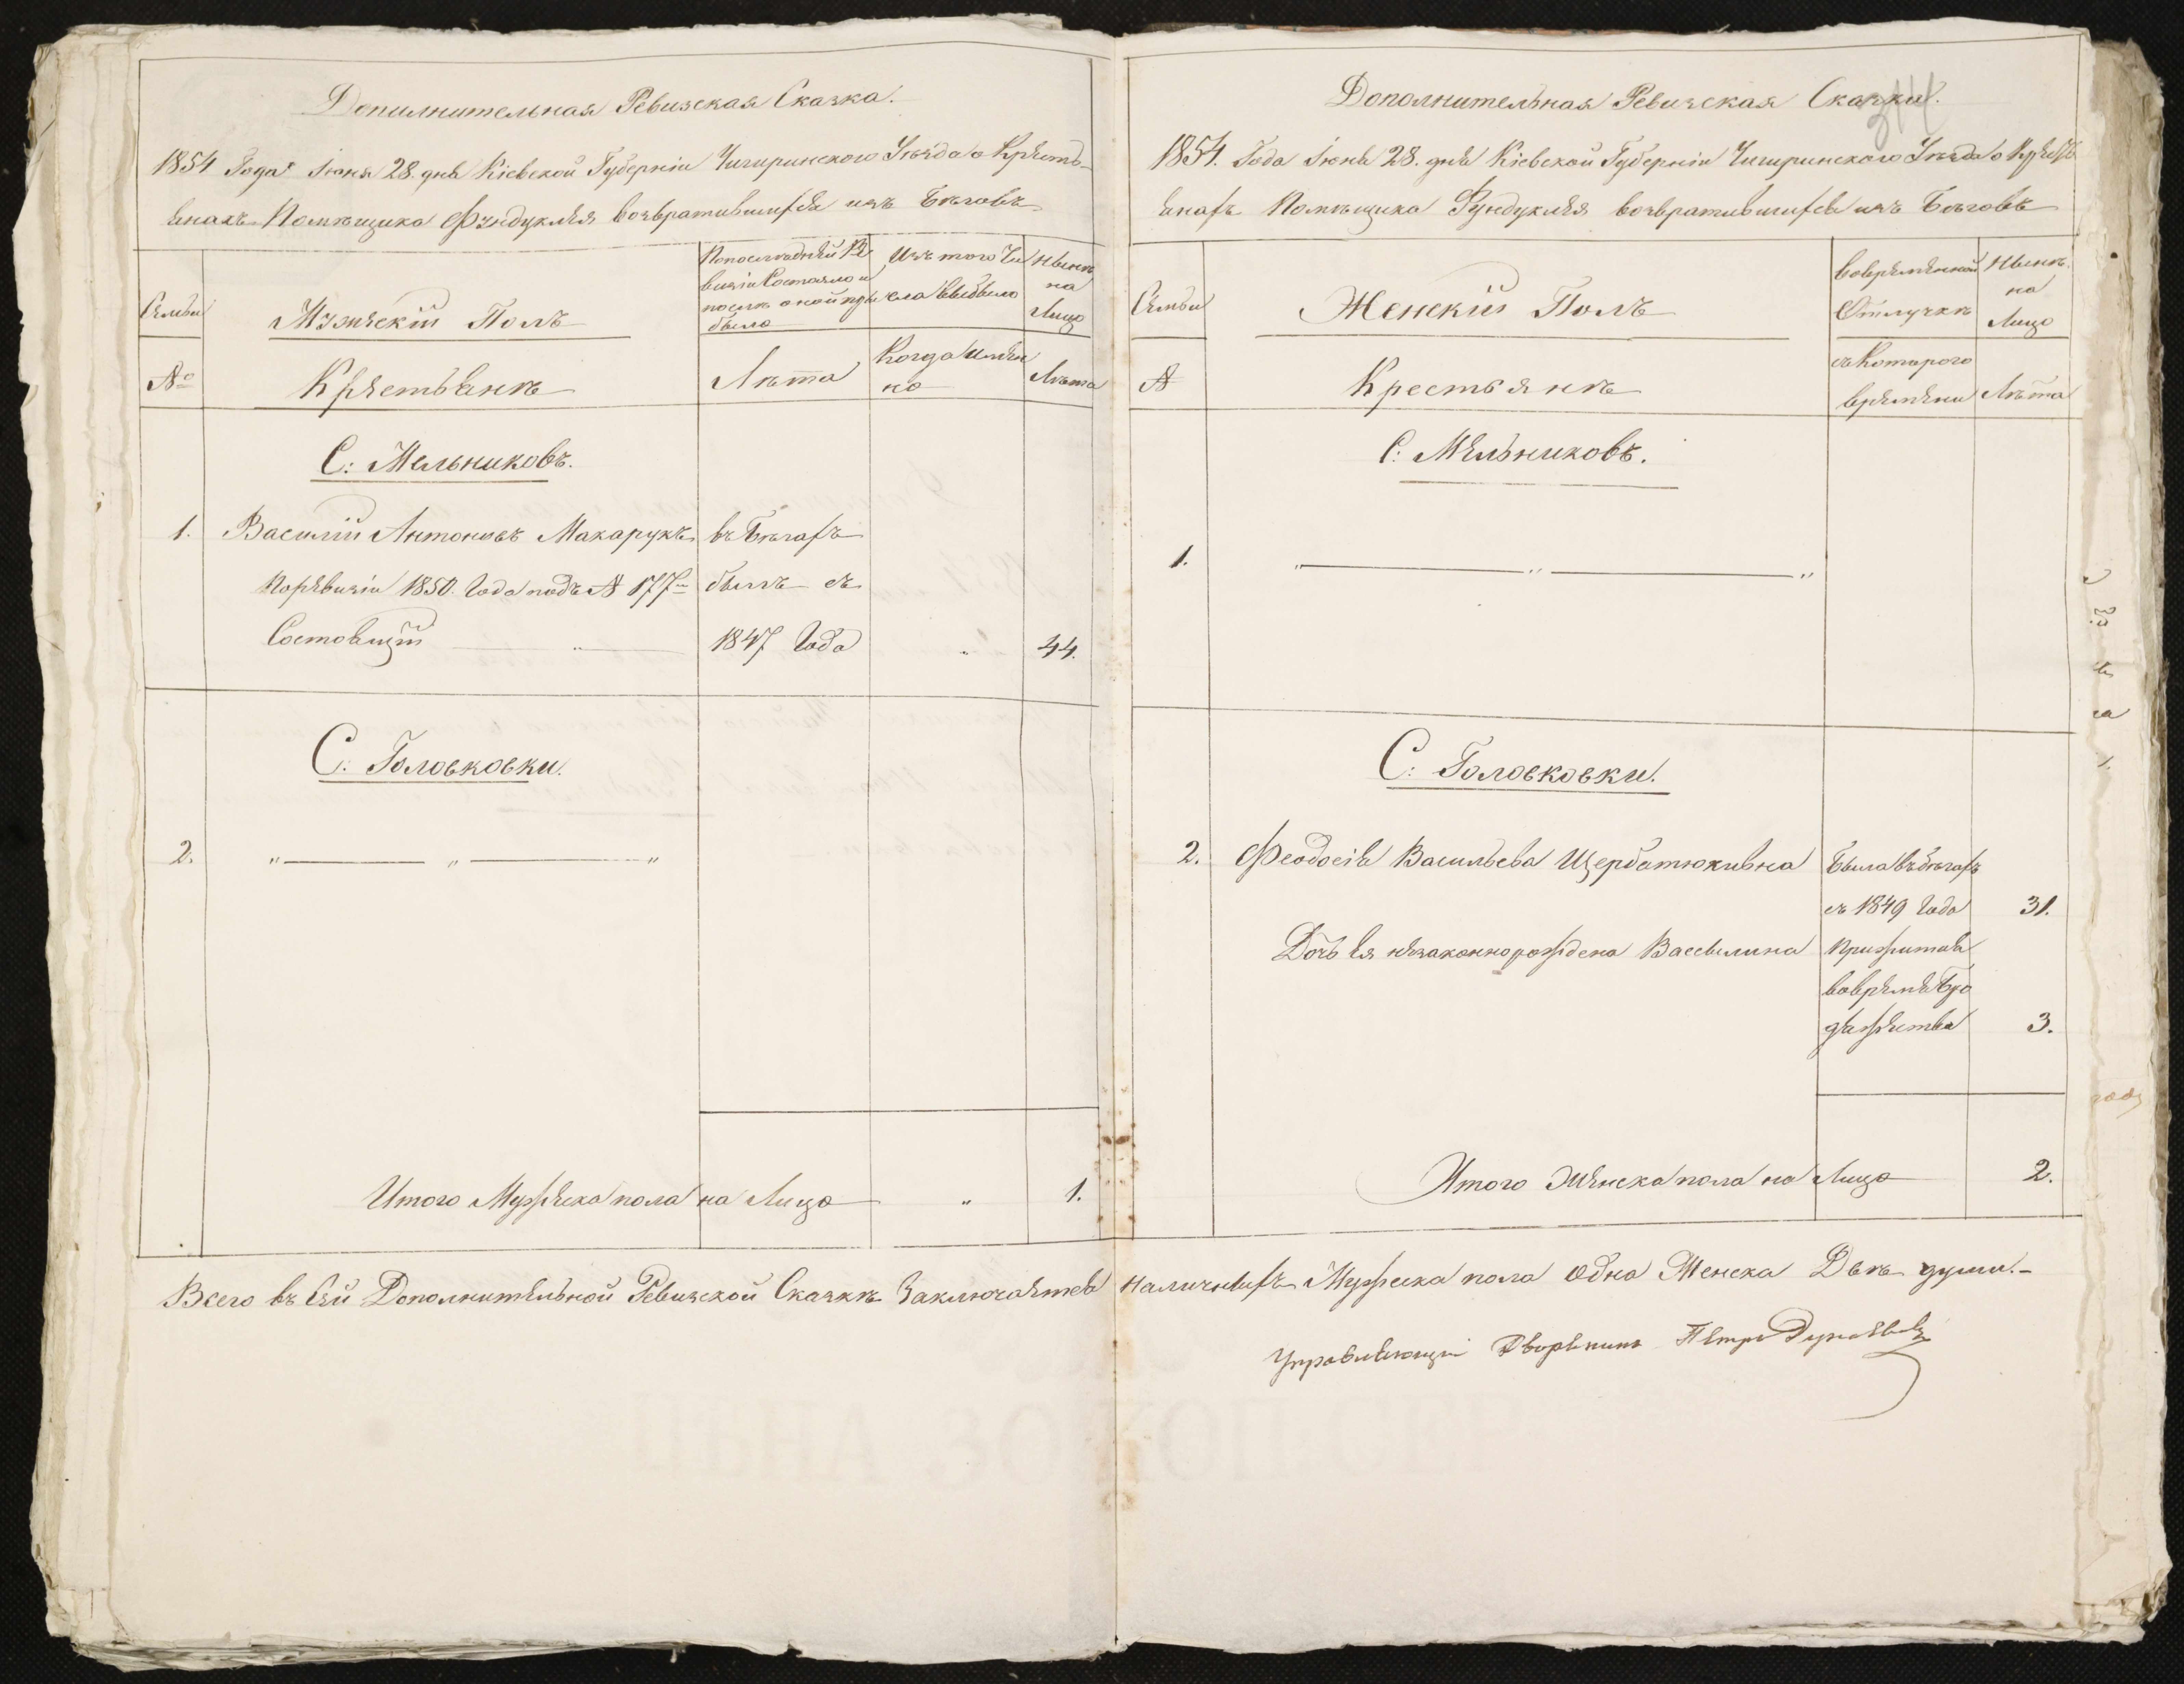 Дополнительная Ревизская Сказка.
1854 Года Июня 28. дня Кіевской Губерніи Чигиринскаго Уѣзда о Крѣсть-
янахъ Помѣщика Фундуклея возвратившихся изъ Бѣговъ
Семьи
Мужескій Полъ
Попослѣдней Ре
визіи Состояло и
послѣ оной при
было
Изъ того Чи
сла выбыло
Нынѣ
на
Лицо
№
Крестьянѣ
Лѣта
Когда имян
но
Лѣта
С: Мельниковъ.
1. Василій Антоновъ Макарукъ
въ Бѣгахъ
Поревизіи 1850. Года подъ № 177м
былъ съ
Состоящій „
1847 Года „ 44.
С. Головковки.
2. „ „ „
Итого Мужеска пола на Лицо „ 1.
Дополнительная Ревизская Сказка.
344
1854. Года Июня 28. дня Кіевской Губерніи Чигиринскаго Уѣзда о Кресть
янахъ Помѣщика Фундуклея возвратившихся изъ Бѣговъ
Семьи
Женскій Полъ
вовременной
Отлучкѣ
Нынѣ
на
Лицо
№
Крестьянѣ
съ Котораго
времени
Лѣта
С: Мельниковъ.
1. „ „ „
С: Головковки.
2. Феодосія Васильева Щербатюкивна
Была въ бѣгахъ
съ 1849 Года 31.
Дочь ея незаконнорождена Вассылина
Прижитая
вовремя Бро
дяжества 3.
Итого Женска пола на Лицо 2.
Всего въ сей Дополнительной Ревизской Сказкѣ Заключается Наличныхъ Мужеска пола Одна Женска Двѣ души.-
Управляющій Дворянинъ Петръ